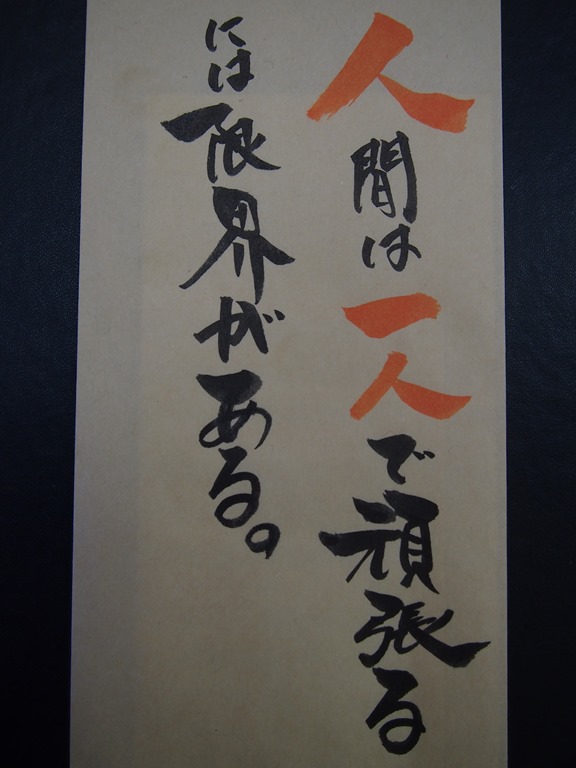 人間は一人で頑張る
には限界がある。